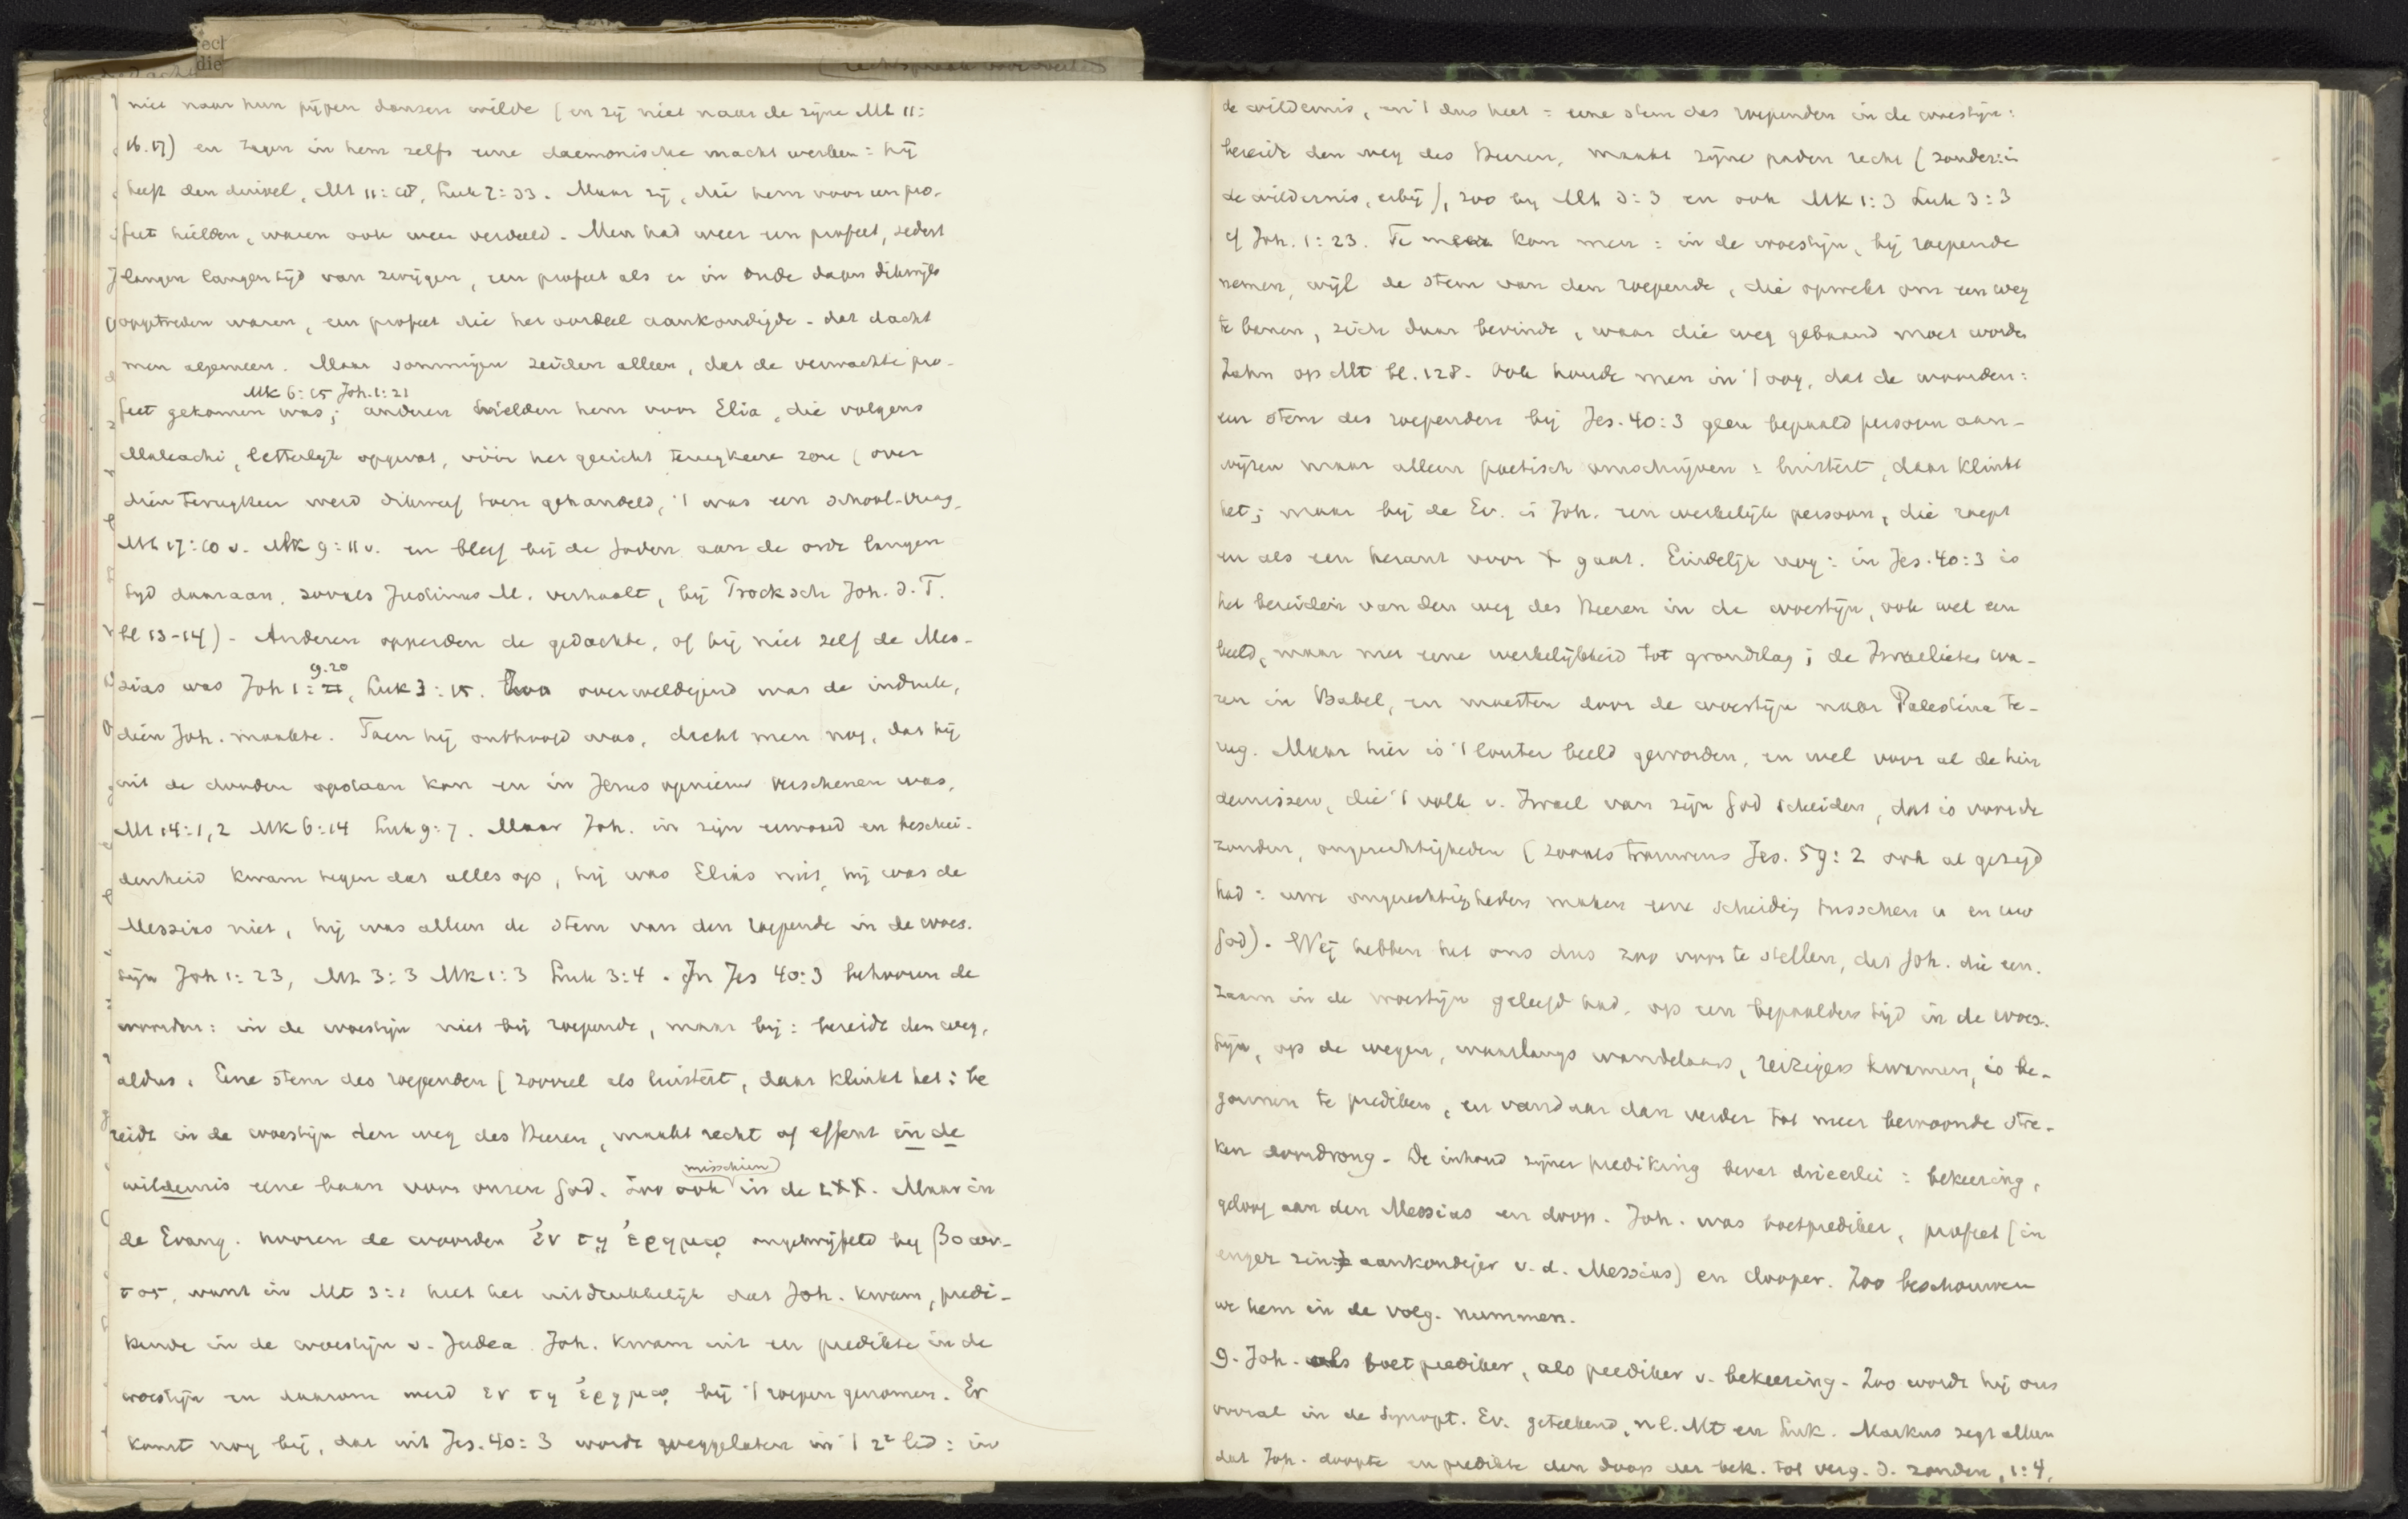 niet naar hun pijpen dansen wilde (en zij niet naar de zijne Mt 11:
16.17) en zagen in hem zelfs eene daemonische macht werken: hij
heeft den duivel, Mt 11:18, Luk 7:33. Maar zij, die hem voor een pro-
feet hielden, waren ook weer verdeeld. Men had weer een profeet, sedert
langen langen tijd van zwijgen, een profeet als er in oude dagen dikwijls
opgetreden waren, een profeet die het oordeel aankondigde - dat dacht
men algemeen. Maar sommigen zeiden alleen, dat de verwachte pro-
Mk 6:15 Joh. 1:21
feet gekomen was; anderen hielden hem voor Elia, die volgens
Maleachi, letterlijk opgevat, vóór het gericht terugkeeren zou (over
dien terugkeer werd dikwerf toen gehandeld, 't was een school-vraag,
Mt 17:10 v. Mk 9:11 v. en bleef bij de Joden aan de orde langen
tijd daaraan, zooals Justinus M. verhaalt, bij Bocksch Joh. d. T.
bl 13-14) - Anderen opperden de gedachte, of hij niet zelf de Mes-
9.20
sias was Joh 1:, Luk 3:15. Zoo overweldigend was de indruk,
dien Joh. maakte. Toen hij onthoofd was, dacht men nog, dat hij
uit de dooden opstaan kon en in Jezus opnieuw verschenen was,
Mt 14:1,2 Mk 6:14 Luk 9:7. Maar Joh. in zijn eenvoud en beschei-
denheid kwam tegen dat alles op, hij was Elias niet, hij was de
Messias niet, hij was alleen de stem van den roepende in de woes-
tijn Joh 1:23, Mt 3:3 Mk 1:3 Luk 3:4. In Jes 40:3 behooren de
woorden: in de woestijn niet bij roepende, maar bij: bereidt den weg,
aldus: Eene stem des roependen (zooveel als luistert, daar klinkt het: be
reidt in de woestijn den weg des Heeren, maakt recht of effent in de
misschien
wildernis eene baan voor onzen God. Zoo ook in de LXX. Maar in
de Evang. hooren de woorden ἐν τῃ ἐρημῳ ongetwijfeld bij βοων-
τος, want in Mt 3:1 heet het uitdrukkelijk dat Joh. kwam, predi-
kende in de woestijn v. Judea. Joh. kwam uit en predikte in de
woestijn en daarom werd εν τῃ ἐρημῳ bij 't roepen genomen. Er
komt nog bij, dat uit Jes. 40:3 wordt weggelaten in 't 2e lid: in
de wildernis, en 't dus heet: eene stem des roependen in de woestijn:
bereidt den weg des Heeren, maakt zijne paden recht (zonder: in
de wildernis, erbij), zoo bij Mt 3:3 en ook Mk 1:3 Luk 3:3
cf Joh. 1:23. Te meer kon men: in de woestijn, bij roepende
nemen, wijl de stem van den roepende, die opwekt om een weg
te banen, zich daar bevindt, waar die weg gebaand moet worden
Zahn op Mt bl. 128. Ook houde men in 't oog, dat de woorden:
een stem des roependen bij Jes. 40:3 geen bepaald persoon aan-
wijzen maar alleen poetisch omschrijven: luistert, daar klinkt
het; maar bij de Ev. is Joh. een werkelijk persoon, die roept
en als een heraut voor X gaat. Eindelijk nog: in Jes. 40:3 is
het bereiden van den weg des Heeren in de woestijn, ook wel een
beeld, maar met eene werkelijkheid tot grondslag; de Israelieten wa-
ren in Babel, en moesten door de woestijn naar Palestina te-
rug. Maar hier is 't louter beeld geworden, en wel voor al de hin
dernissen, die 't volk v. Israel van zijn God scheiden, dat is voor de
zonden, ongerechtigheden (zooals trouwens Jes. 59:2 ook al gezegd
had: uwe ongerechtigheden maken eene scheiding tusschen u en uw
God). Wij hebben het ons dus zoo voor te stellen, dat Joh. die een-
zaam in de woestijn geleefd had, op een bepaalden tijd in de woes-
tijn, op de wegen, waarlangs wandelaars, reizigers kwamen, is be-
gonnen te prediken, en vandaar dan verder tot meer bewoonde stre-
ken doordrong. De inhoud zijner prediking bevat drieerlei: bekeering,
geloof aan den Messias en doop. Joh. was boetprediker, profeet (in
enger zin: aankondiger v.d. Messias) en dooper. Zoo beschouwen
we hem in de volg. nummers.
9. Joh. als boetprediker, als prediker v. bekeering. Zoo wordt hij ons
vooral in de Synopt. Ev. geteekend, nl. Mt en Luk. Markus zegt alleen
dat Joh. doopte en predikte den doop der bek. tot verg. d. zonden, 1:4,